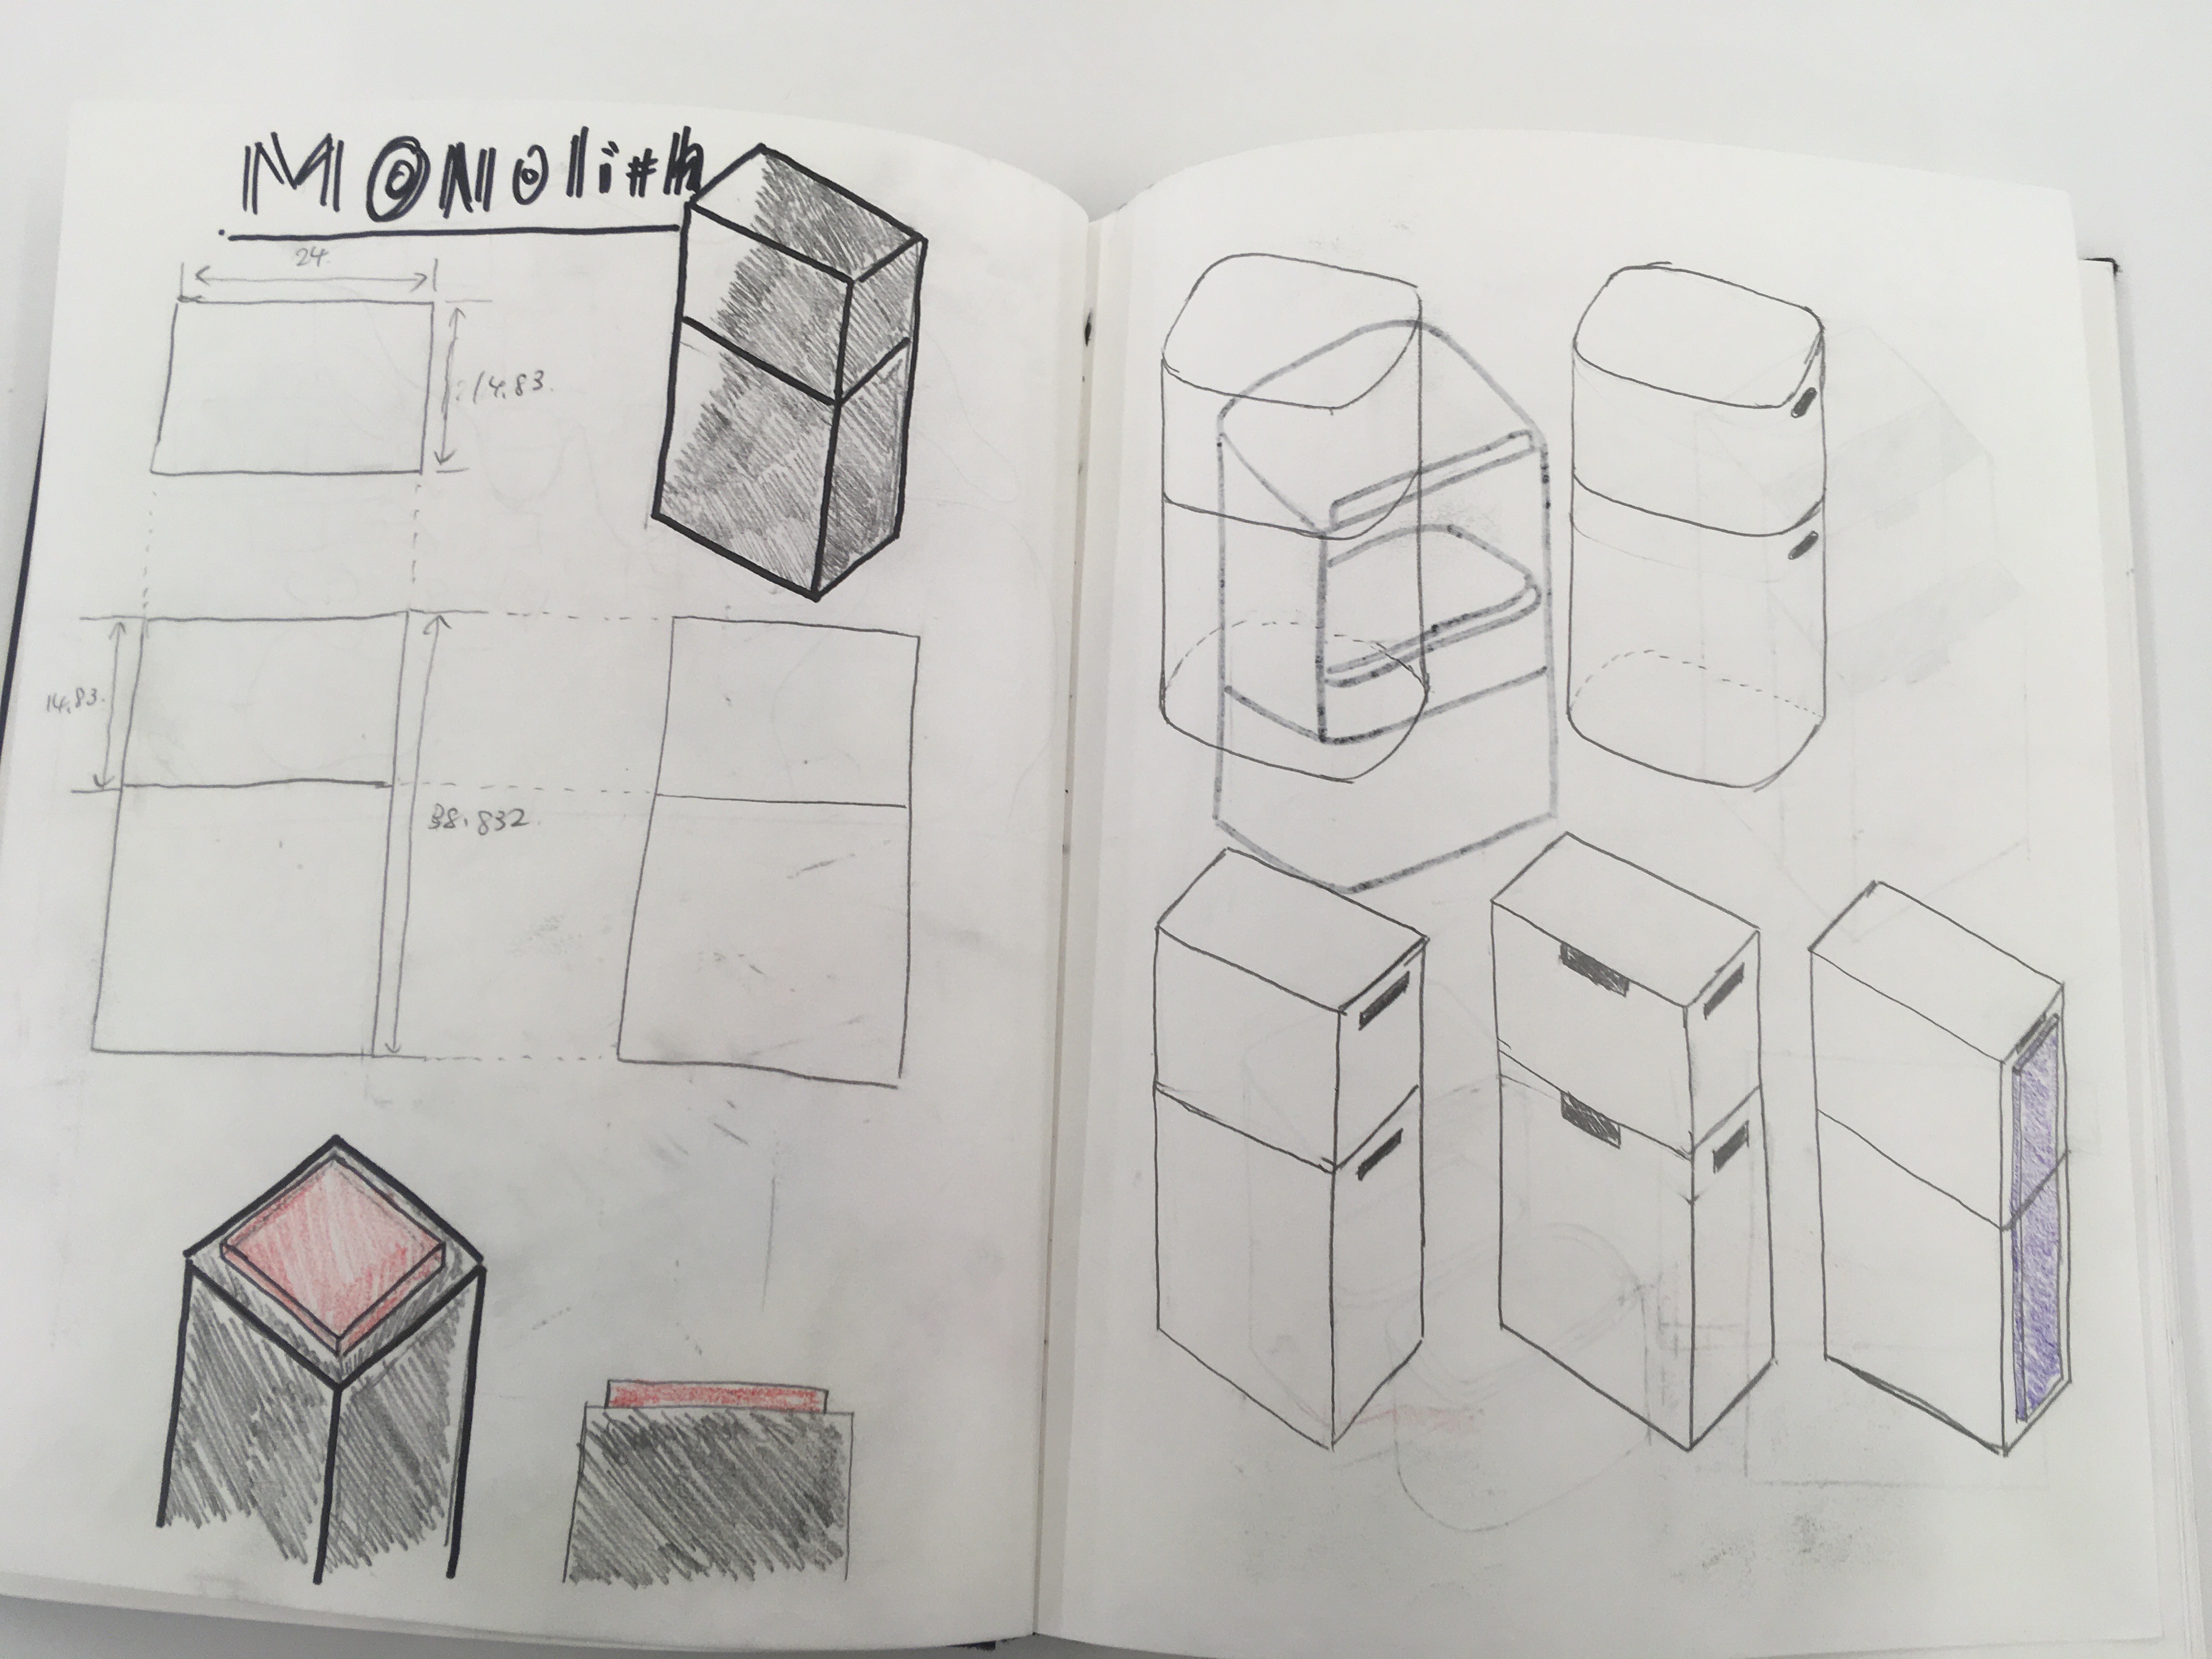 MONOlith
24.
14.83.
14.83.
38.832.